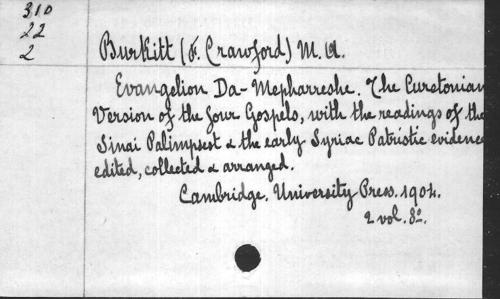 310
22
2
Burkitt (F. Crawford) M.A.
Evangelion Da-Mepharreshe. The Curetonian
Version of the four Gospels, with the readings of the
Sinai Palimpsest & the early Syriac Patristic evidence
edited, collected & arranged.
Cambridge. University Press. 1904.
2 vol. 8o.